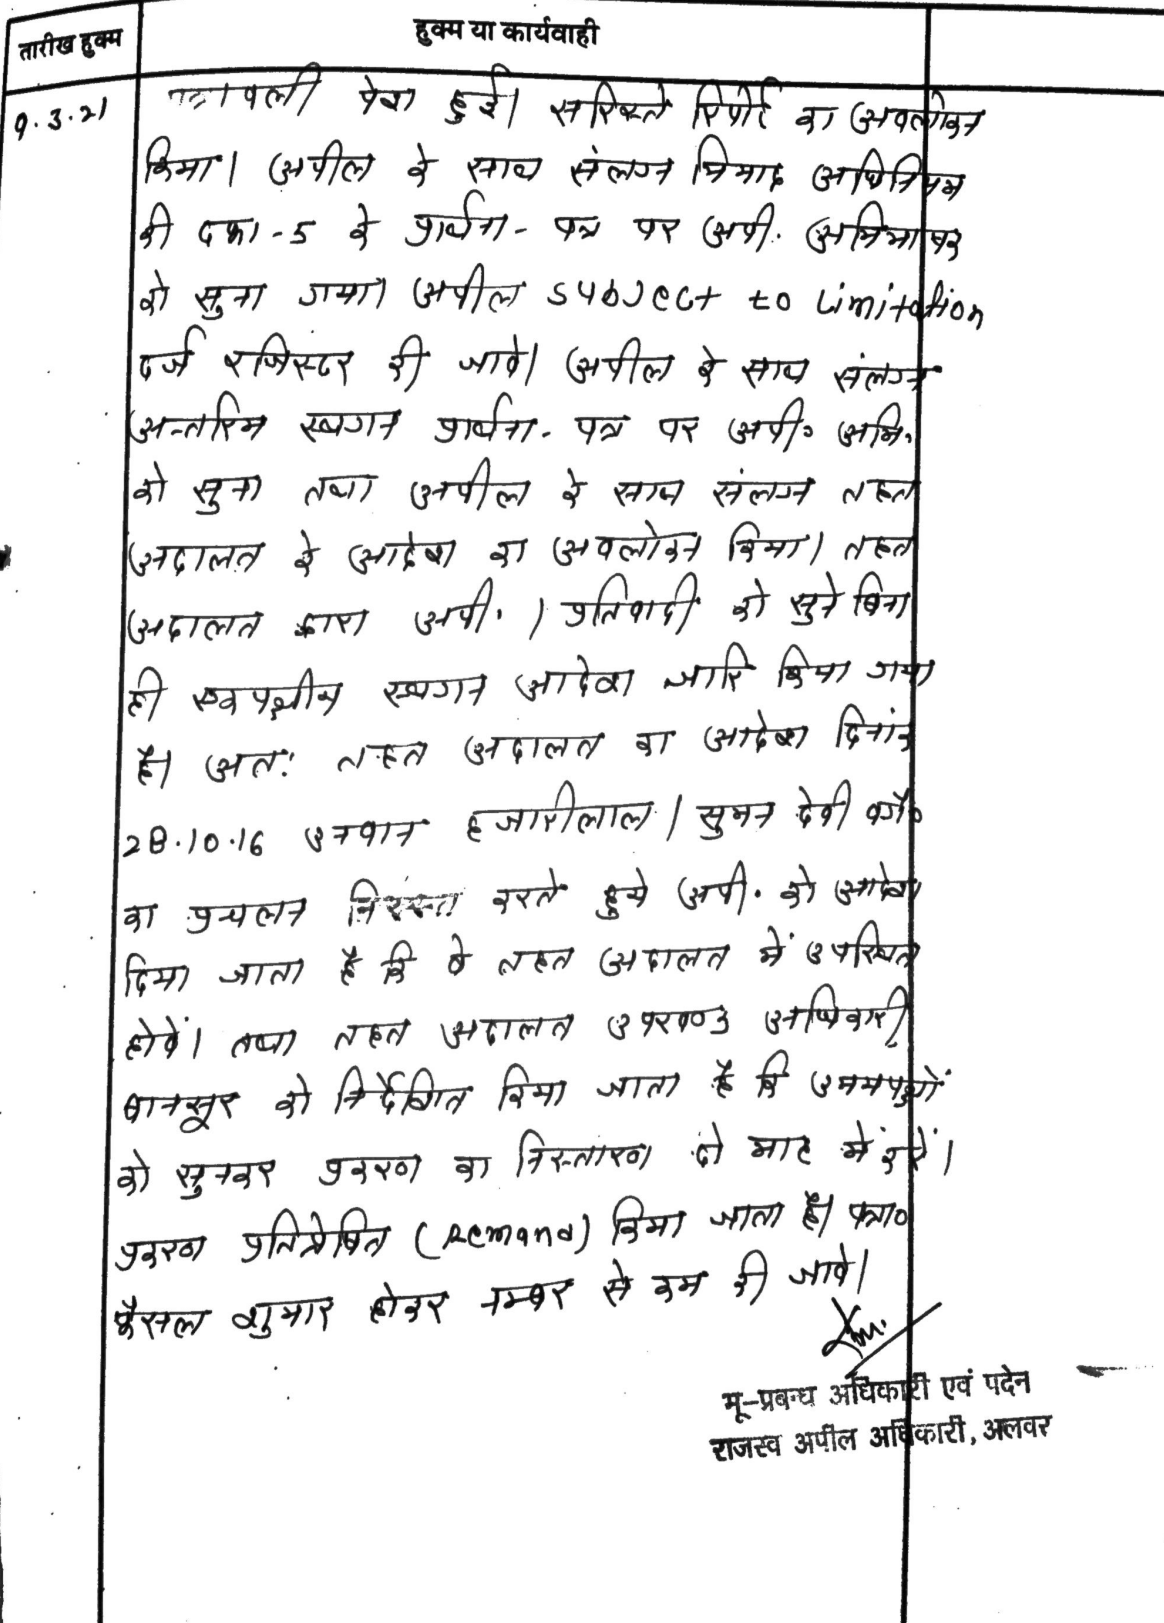 तारीख हुक्म
हुक्म या कार्यवाही
9.3.21
पत्रावली पेश हुई। सरिश्ते रिपोर्ट का अवलोकन
किया। अपील के साथ संलग्न मियाद अधिनियम
की दफा-5 के प्रार्थना-पत्र पर अपी. अभिभाषक
को सुना गया। अपील subject to Limitation
दर्ज रजिस्टर की जावे। अपील के साथ संलग्न
अन्तरिम स्थगन प्रार्थना-पत्र पर अपी० अभि.
को सुना तथा अपील के साथ संलग्न तहत
अदालत के आदेश का अवलोकन किया। तहत
अदालत द्वारा अपी. / प्रतिवादी को सुने बिना
ही एकपक्षीय स्थगन आदेश जारि किया गया
है। अतः तहत अदालत का आदेश दिनांक
28.10.16 उनवान हजारीलाल / सुमन देवी वगै०
का प्रचलन निरस्त करते हुये अपी. को आदेश
दिया जाता है कि वे तहत अदालत में उपस्थित
होवें। तथा तहत अदालत उपखण्ड अधिकारी
बानसूर को निर्देशित किया जाता है कि उभयपक्षों
को सुनकर प्रकरण का निस्तारण दो माह में करें।
प्रकरण प्रतिप्रेषित (Remand) किया जाता है। पत्रा०
फैसल शुमार होकर नम्बर से कम की जावे।
भू-प्रबन्ध अधिकारी एवं पदेन
राजस्व अपील अधिकारी, अलवर